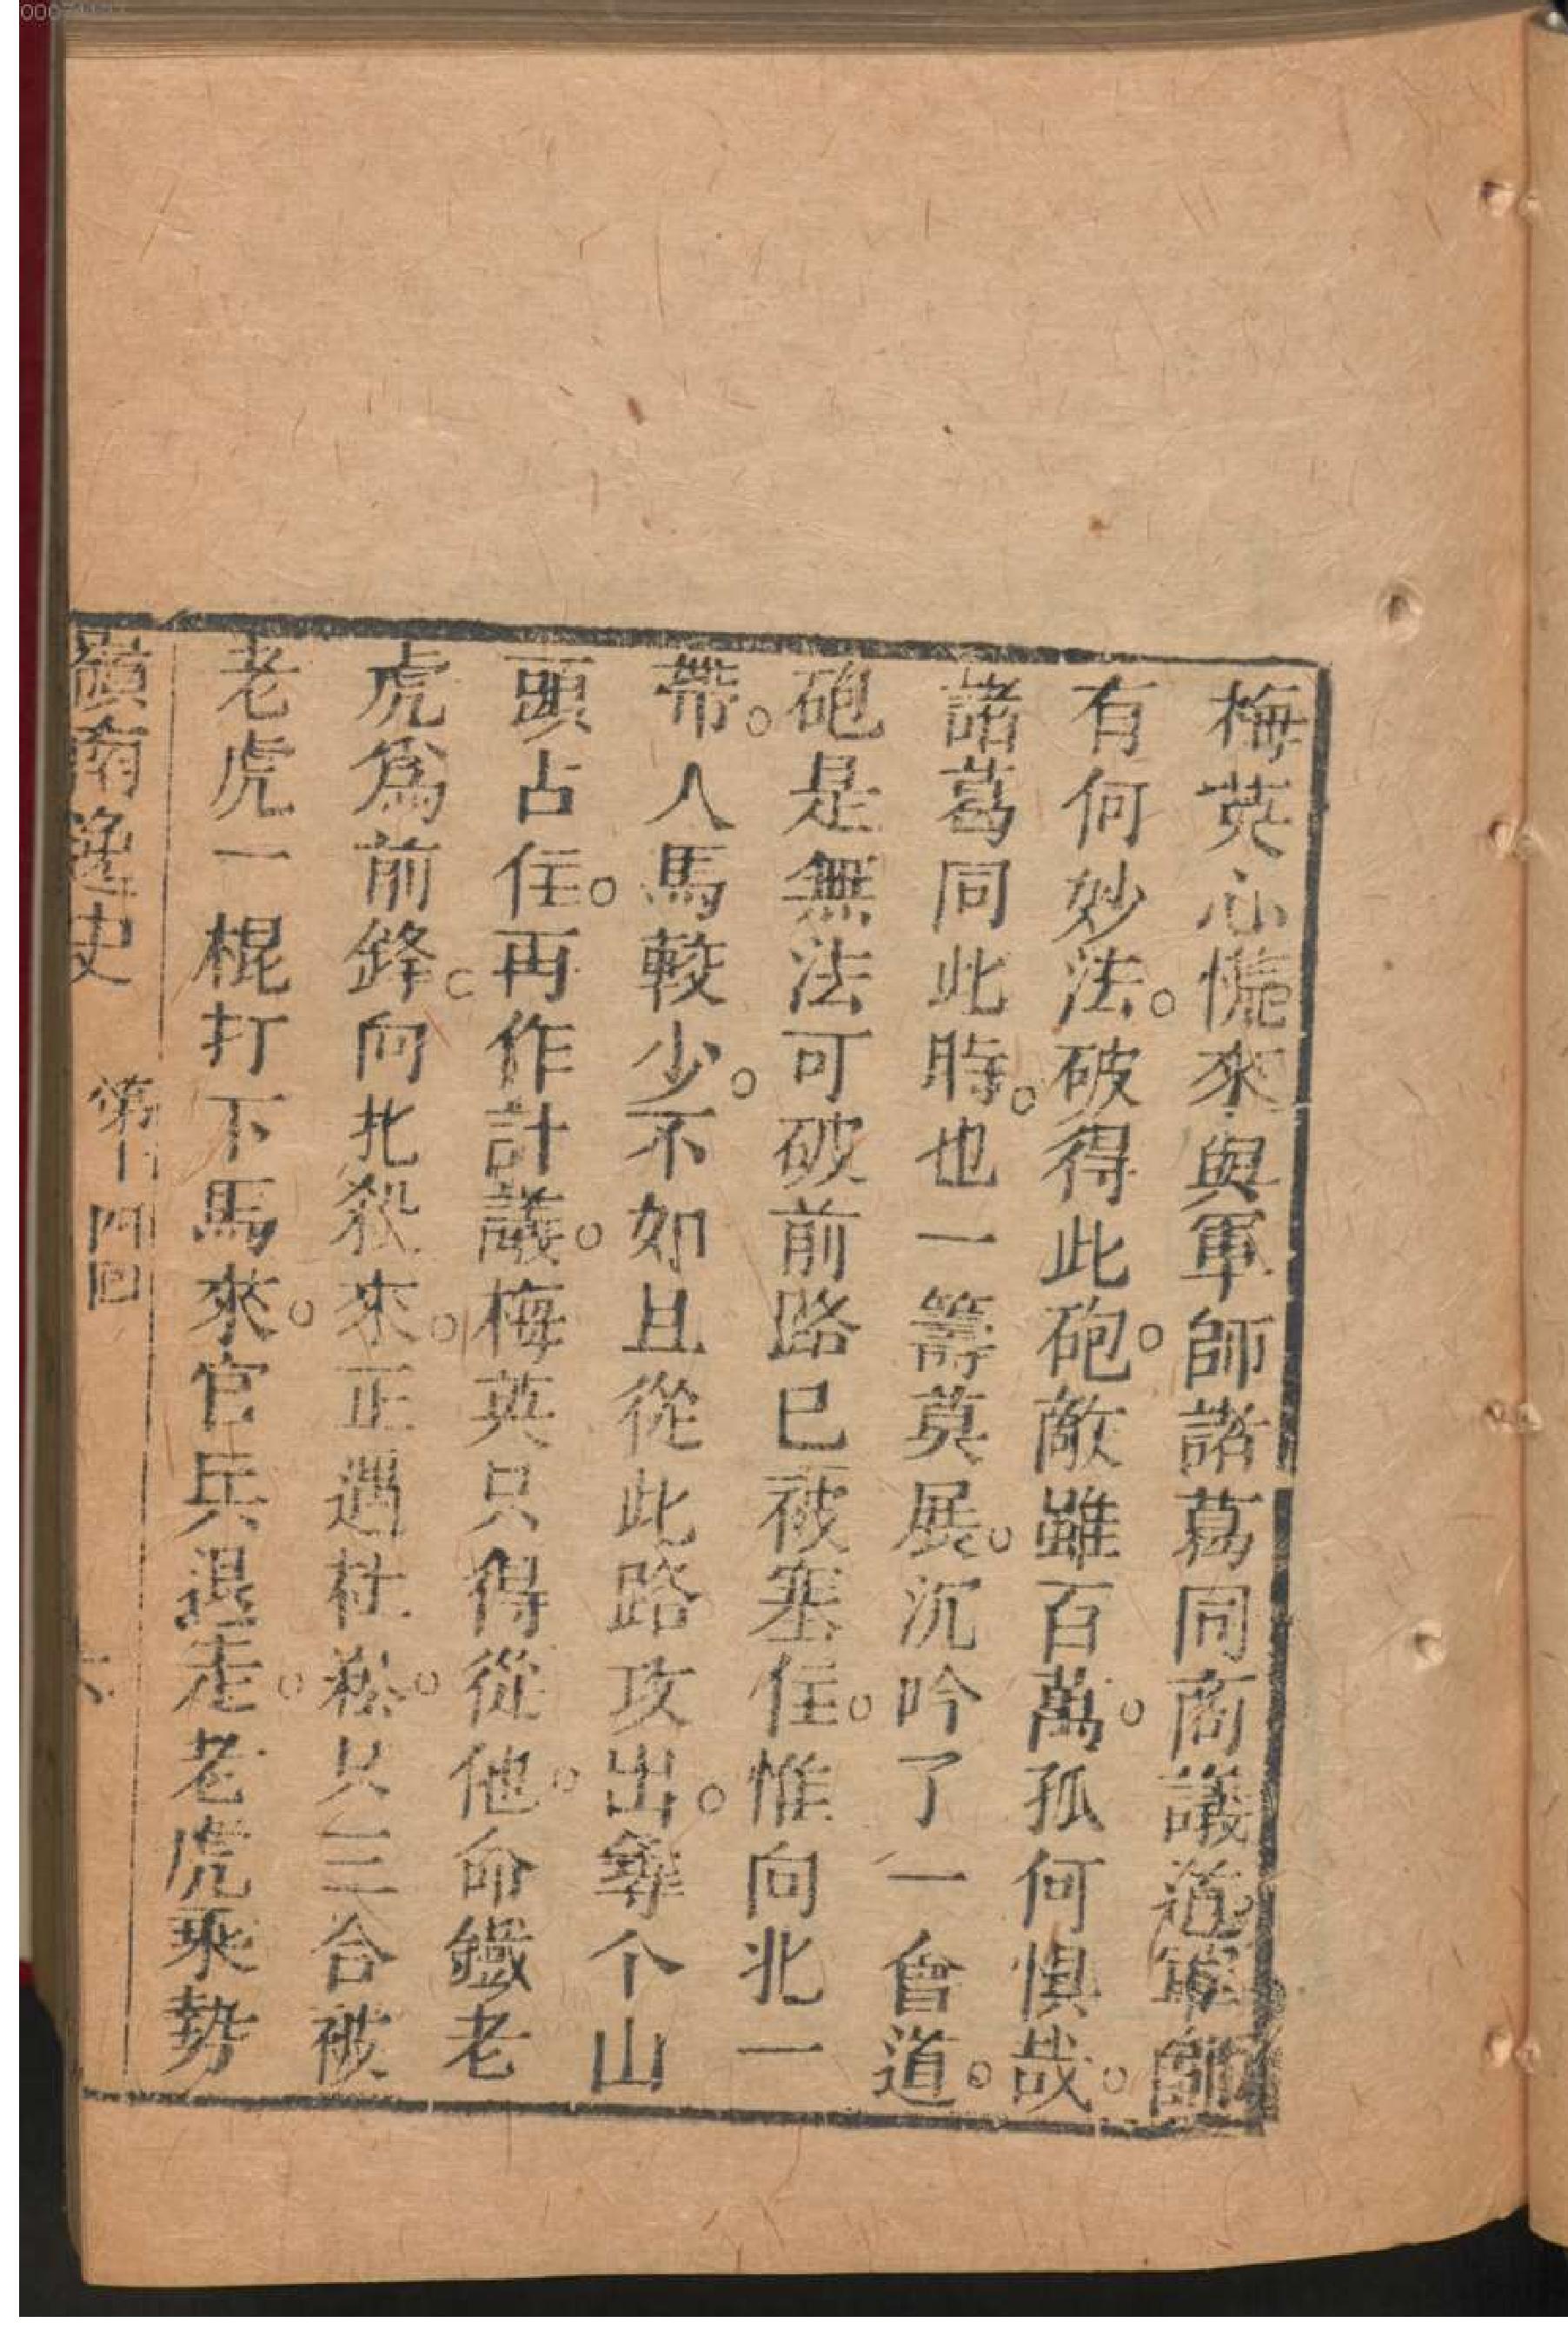 梅英心慌來與軍師諸葛同商議道軍師
有何妙法。破得此砲。敵雖百萬。孤何惧哉。
諸葛同此時。也一籌莫展。沉吟了一會道。
砲是無法可破前路已被塞住。惟向北一
帶。人馬較少。不如且從此路攻出。尋个山
頭占住。再作計議。梅英只得從他。命鐵老
虎爲前鋒。向北殺來。正遇杜松。只三合被
老虎一棍打下馬來。官兵退走。老虎乘勢
嶺南逸史 第 四回 六